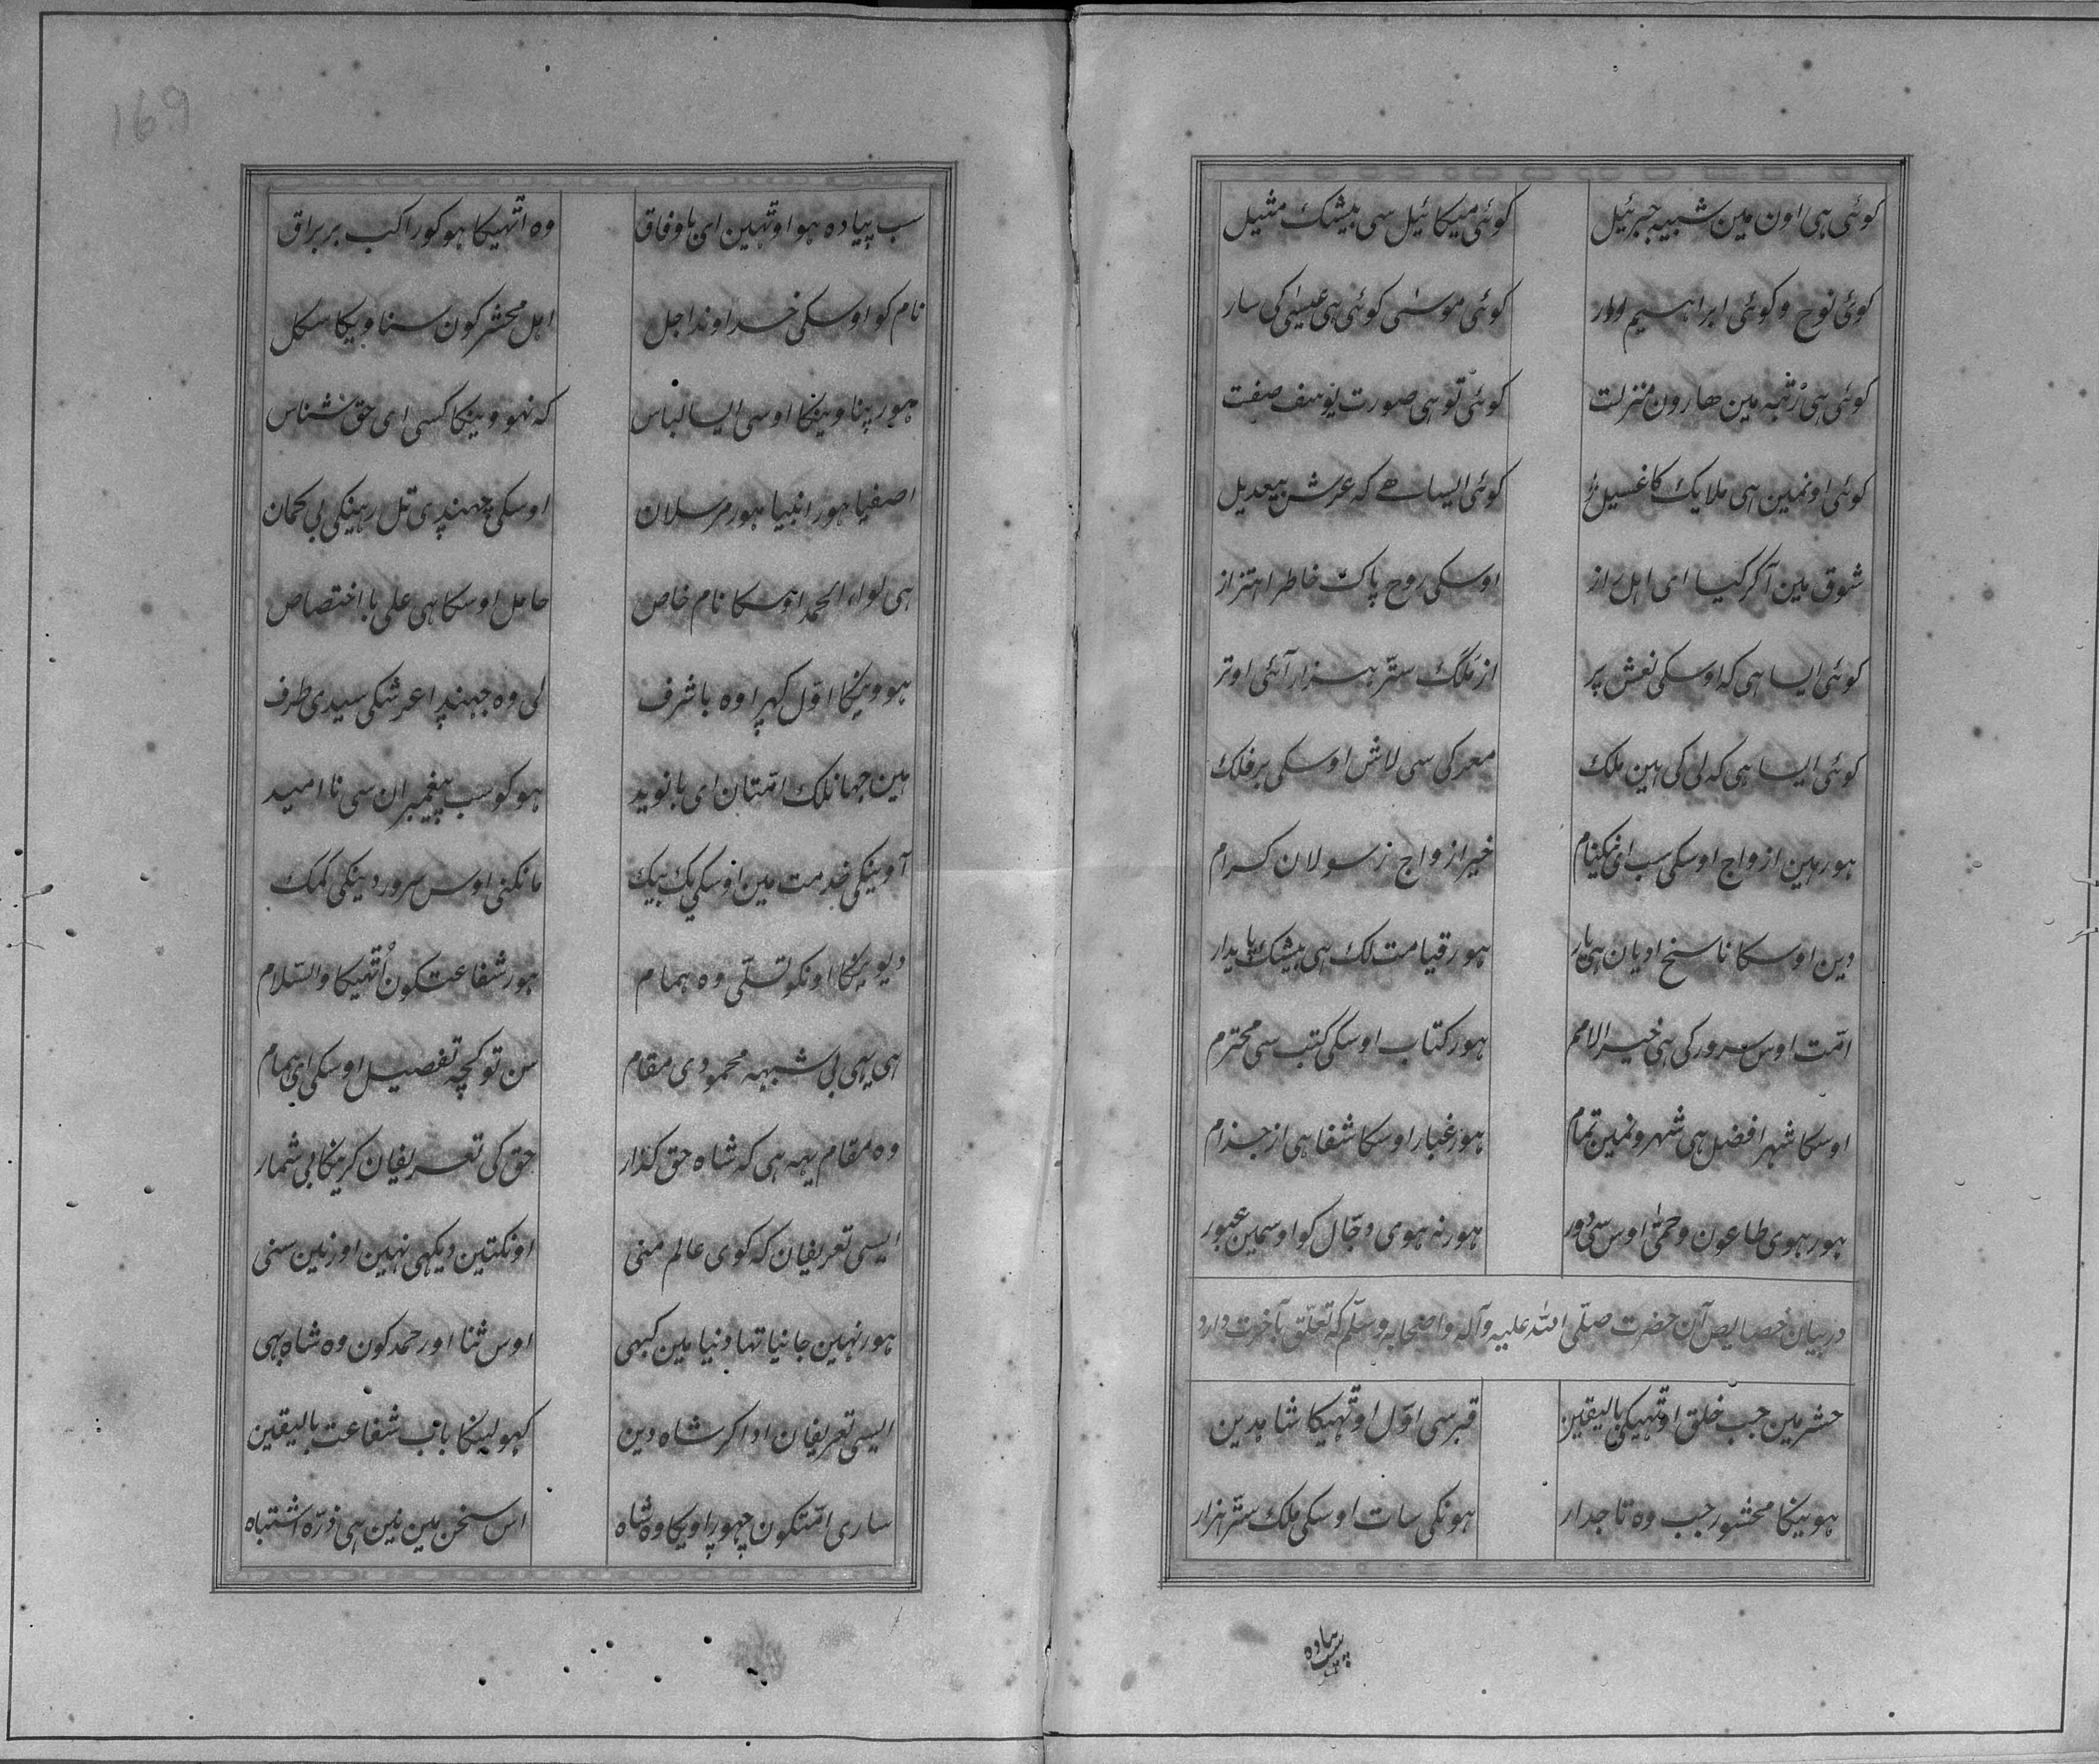 کوئی ہی اون مین شبیہ جبرئیل کوئی میکائیل سی بیشک مثیل
کوئی نوح و کوئی ابراہیم وار کوئی موسٰی کوئی ہی عیسٰی کی سار
کوئی ہی رُتبہ مین ھارون منزلت کوئی تو ہی صورت یوسف صفت
کوئی اونمین ہی ملایک کا غسیل کوئی ایسا ھے کہ عرش بیعدیل
شوق مین آکر کیا ای اہل راز اوسکی روح پاک خاطر اہتزاز
کوئی ایسا ہی کہ اوسکی نعش پر از ملک ستّر ہزار آئی اوتر
کوئی ایسا ہی کہ لی کی ہین ملک معرکی سی لاش اوسکی بر فلک
ہور ہین ازواج اوسکی سب ای نیکنام خیر ازواج رسولان کرام
دین اوسکا ناسخ ادیان ہی یار ہور قیامت لک ہی بیشک پایدار
امّت اوس سرور کی ہی خیر الامم ہور کتاب اوسکی کتب سی محترم
اوسکا شہر افضل ہی شہرونمین تمام ہور غبار اوسکا شفا ہی از جذام
ہور ہوی طاعون و حمّیٰ اوس سی دور ہور نہ ہوی دجّال کو اوسمین عبور
در بیان خصایص آن حضرت صلّی اللہ علیہ وآلہ واصحابہ وسلّم کہ تعلّق بآخرت دارد
حشر مین جب خلق اوتھیکی بالیقین قبر سی اوّل اوتھیکا شاہدین
ہویکا محشور جب وہ تاجدار ہونکی سات اوسکی ملک ستّر ہزار
سب پیادہ
سب پیادہ ہو اوتھین ای باوفاق وہ اتھیکا ہو کو راکب بر براق
نام کو اوسکی خداوند اجل اہل محشر کون سناویکا سکل
ہور پناویکا اوسی ایسا لباس کہ نہوویکا کسی ای حق شناس
اصفیا ہور انبیا ہور مرسلان اوسکی جھندی تل رہینکی بی کمان
ہی لواء الحمد اوسکا نام خاص حامل اوسکا ہی علی با اختصاص
ہوویکا اوّل کھرا وہ با شرف لی وہ جھندا عرشکی سیدی طرف
ہین جہانلک امّتان ای با نوید ہو کو سب پیغمبران سی نا امید
آوینکی خدمت مین اوسکی یک بیک مانکنی اوس سرور دینکی کمک
دیویکا اونکو تسلّی وہ ہمام ہور شفاعتکون اُتھیکا والسّلام
ہی یہی بی شبہہ محمودی مقام سن تو کچہ تفصیل اوسکی ای ہمام
وہ مقام یہہ ہی کہ شاہ حق کذار حق کی تعریفان کریکا بی شمار
ایسی تعریفان کہ کوی عالم منی اونکتین دیکھی نہین اور نین سنی
ہور نہین جانیا تھا دنیا مین کبھی اوس ثنا اور حمد کون وہ شاہ بھی
ایسی تعریفان ادا کر شاہ دین کھولیکا باب شفاعت بالیقین
ساری امّتکون چھوراویکا وہ شاہ اس سخن مین نین ہی ذرّہ اشتباہ
169